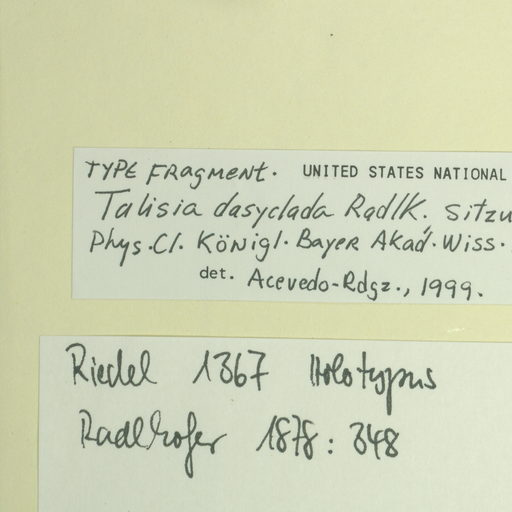 TYPE FRAGMENT. UNITED STATES NATIONAL
Talisia dasyclada Radlk. Sitzu
Phys.Cl. Königl. Bayer Akad. Wiss.
det. Acevedo-Rdgz., 1999.
Riedel 1367 Holotypus
Radlkofer 1878: 348